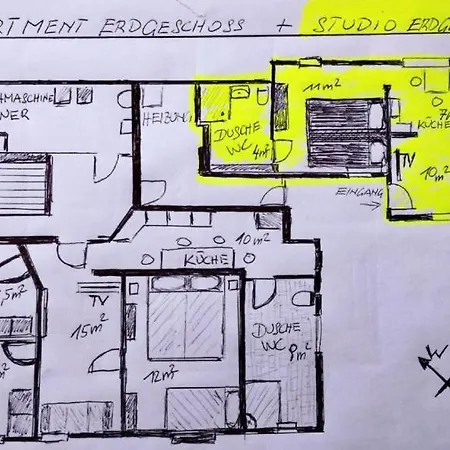 RTMENT ERDGESCHOSS + STUDIO ERDG
HMASCHINE
NER
HEIZUNG
DUSCHE
WC
4m²
11m²
KÜCHE
TV
10m²
EINGANG
10m²
KÜCHE
,5m²
TV
15m²
m²
12m²
DUSCHE
WC
m²
N